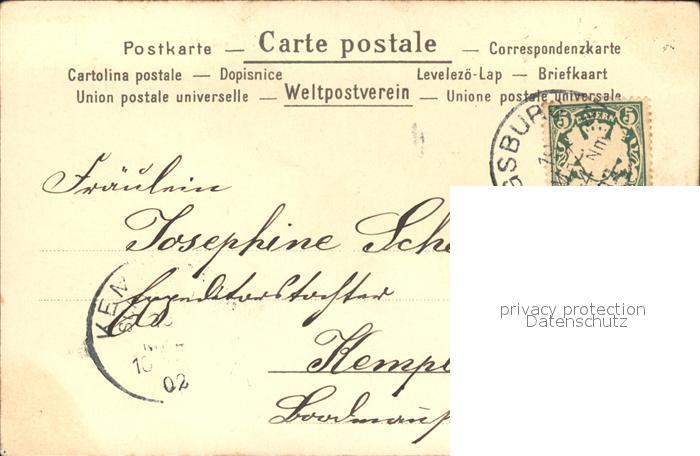 Postkarte — Carte postale — Correspondenzkarte
Cartolina postale — Dopisnice Levelező-Lap — Briefkaart
Union postale universelle — Weltpostverein — Unione postale universale
GSBURG
5 BAYERN 5
Nm
Fräulein
Josephine Sche
Expeditorstochter
Kempt
KEM
10
02
privacy protection
Datenschutz